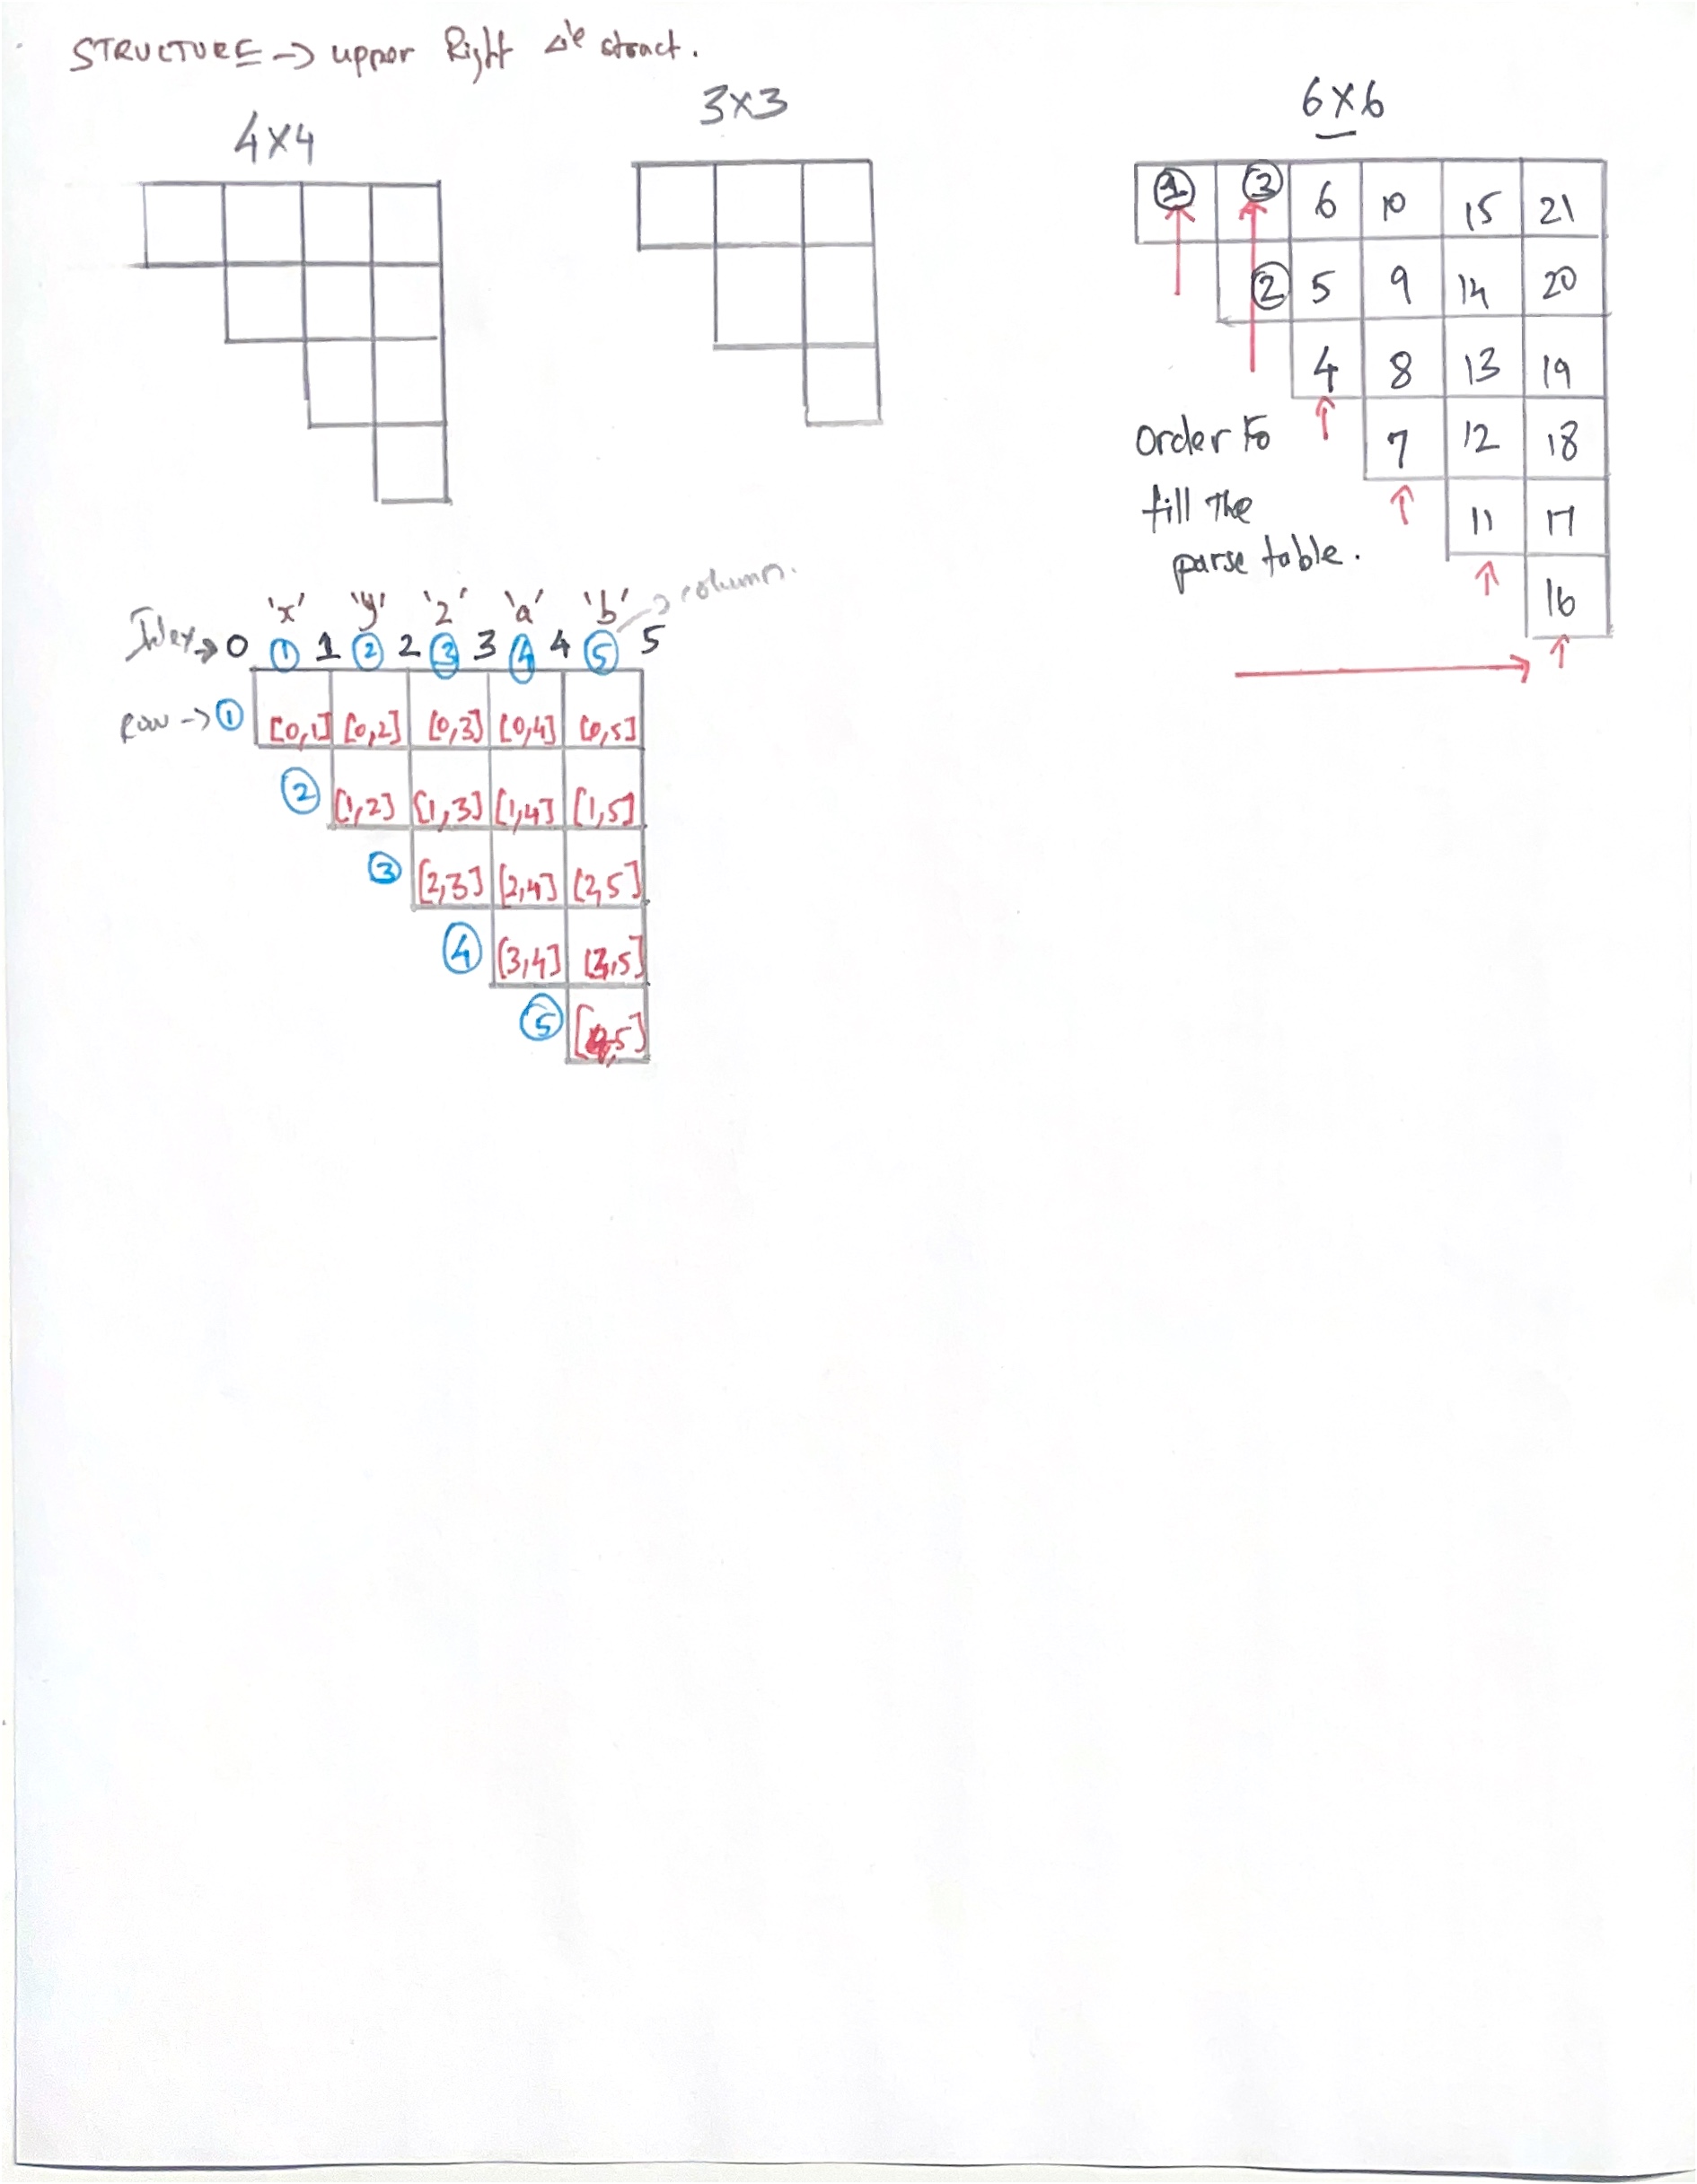 STRUCTURE → upper Right Δle struct.
4×4
3×3
6×6
1 3 6 10 15 21
2 5 9 14 20
4 8 13 19
7 12 18
11 17
16
Order to
fill the
parse table.
'x' 'y' 'z' 'a' 'b' → column.
Index → 0 1 1 2 2 3 3 4 4 5 5
Row → 1 [0,1] [0,2] [0,3] [0,4] [0,5]
2 [1,2] [1,3] [1,4] [1,5]
3 [2,3] [2,4] [2,5]
4 [3,4] [3,5]
5 [4,5]